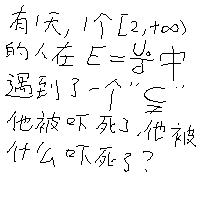 有1天,1个[2,+∞)
的人在E=U₀/d中
遇到了一个"⊊"
他被吓死了,他被
什么吓死了?